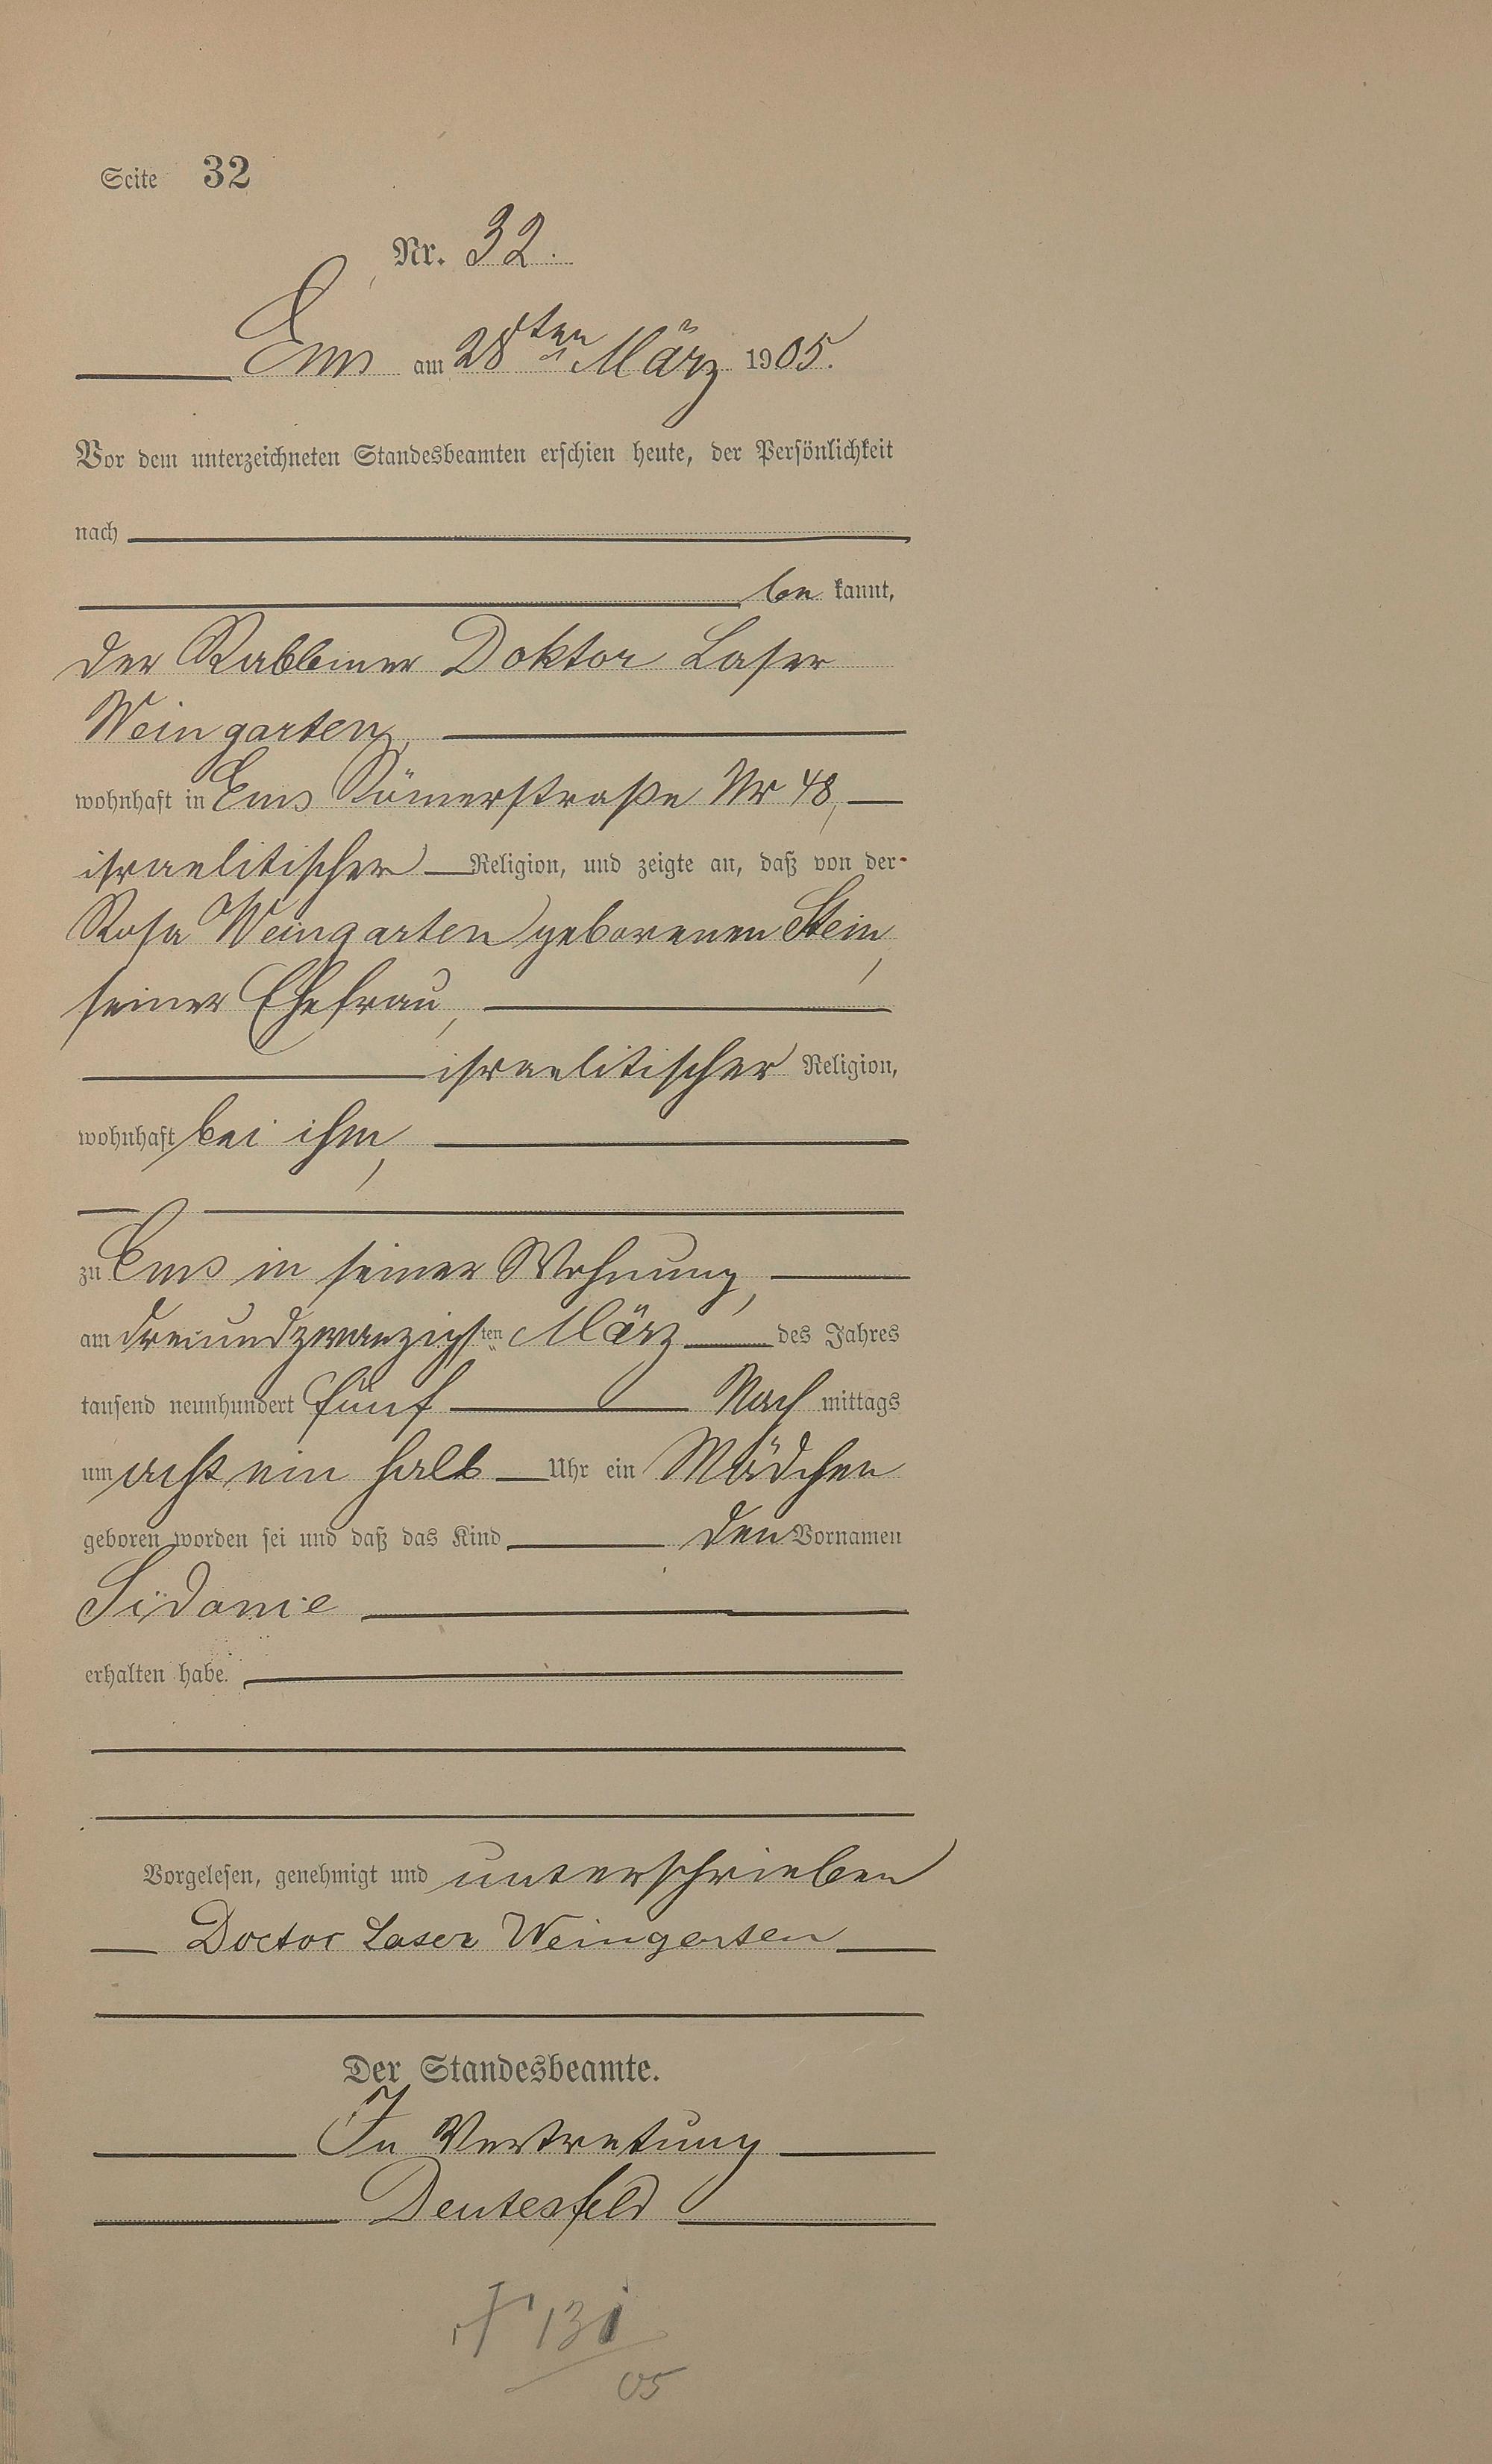 Seite 32
Nr. 32.
Ems am 28ten März 1905.
Vor dem unterzeichneten Standesbeamten erschien heute, der Persönlichkeit
nach
be kannt,
der Rabbiner Doktor Laser
Weingarten,
wohnhaft in Ems Römerstraße Nr 48,
israelitischer Religion, und zeigte an, daß von der
Rosa Weingarten geborenen Stein,
seiner Ehefrau,
israelitischer Religion,
wohnhaft bei ihm,
zu Ems in seiner Wohnung,
am dreiundzwanzigsten März des Jahres
tausend neunhundert fünf Nach mittags
um acht ein halb Uhr ein Mädchen
geboren worden sei und daß das Kind den Vornamen
Sidonie
erhalten habe.
Vorgelesen, genehmigt und unterschrieben
Doctor Laser Weingarten
Der Standesbeamte.
In Vertretung
Deutesfeld
† 131
05